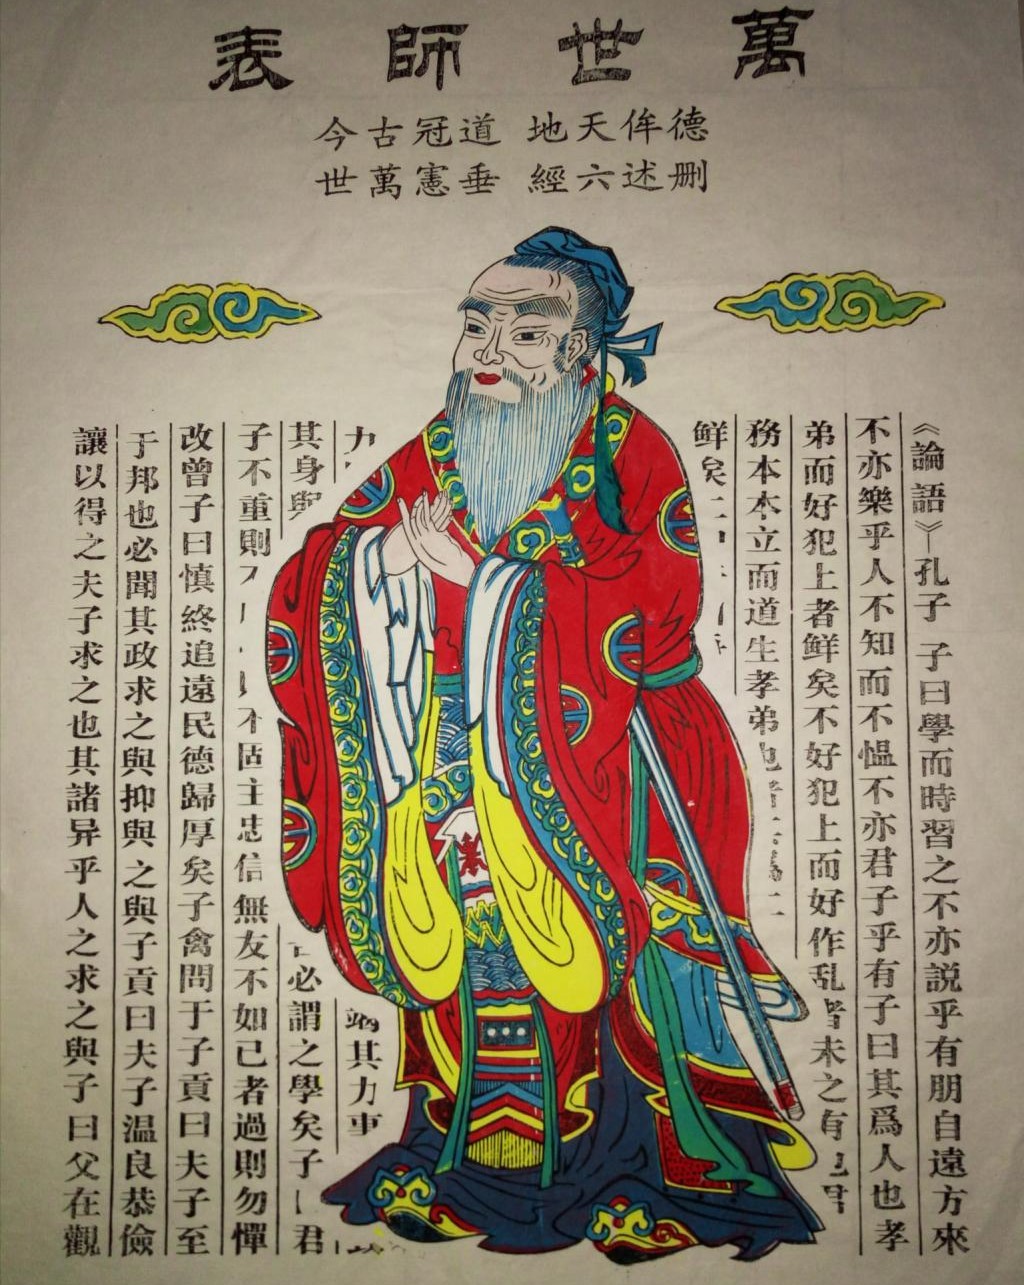 萬世師表
德侔天地 道冠古今
删述六經 垂憲萬世
《論語》—孔子 子曰學而時習之不亦説乎有朋自遠方來
不亦樂乎人不知而不愠不亦君子乎有子曰其爲人也孝
弟而好犯上者鮮矣不好犯上而好作乱者未之有也君
務本本立而道生孝弟也者
鮮矣
力 其力事
其身與 必謂之學矣子 君
子不重則 不固主忠信無友不如己者過則勿憚
改曾子曰慎終追遠民德歸厚矣子禽問于子貢曰夫子至
于邦也必聞其政求之與抑與之與子貢曰夫子温良恭儉
讓以得之夫子求之也其諸异乎人之求之與子曰父在觀